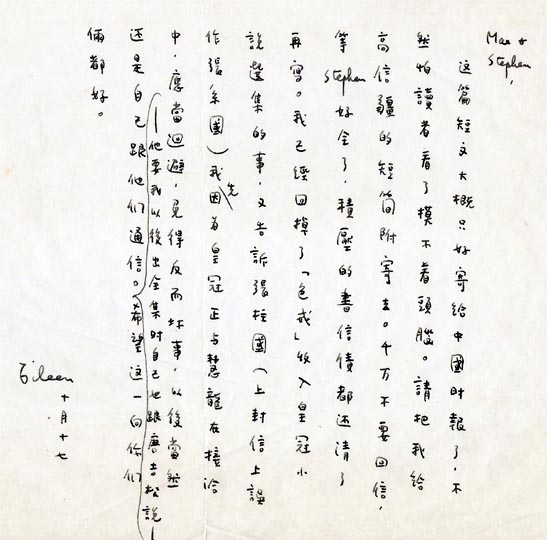 Mae &
Stephen,
這篇短文大概只好寄給中國时報了,不
然怕讀者看了摸不着頭腦。請把我給
高信疆的短简附寄去。千万不要回信,
等Stephen好全了,積壓的書信債都还清了
再寫。我已經回掉了「色戒」收入皇冠小
說選集的事,又告訴張柱國(上封信上誤
作張系國)我因先為皇冠正与慧龍在接洽
中,應當迴避,免得反而坏事,以後當然
—他要我以後出全集时自己也跟唐吉松說—
还是自己跟他们通信。希望这一向你们
倆都好。
Eileen
十月十七